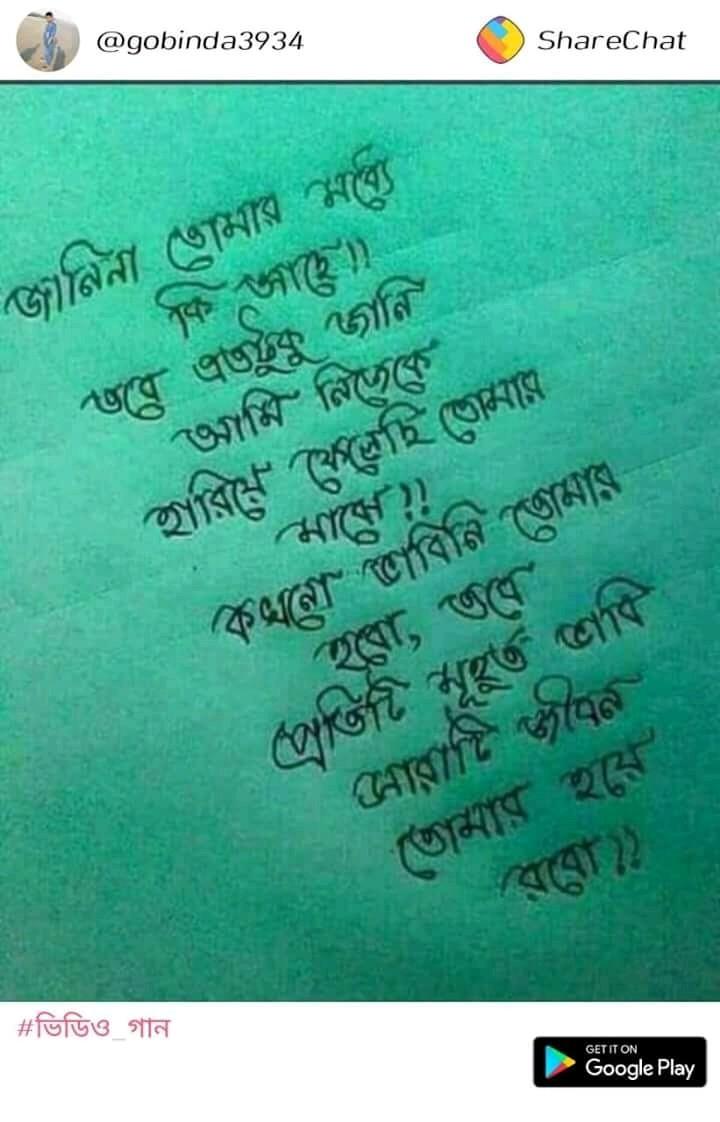 @gobinda3934
ShareChat
জানিনা তোমার মধ্যে
কি আছে!!
তবে এতটুকু জানি
আমি নিজেকে
হারিয়ে ফেলেছি তোমার
মাঝে!!
কখনো ভাবিনি তোমার
হবো, তবে
প্রেতিটি মূহুর্ত ভাবি
সারাটি জীবন
তোমার হয়ে
রবো!!
#ভিডিও_গান
GET IT ON
Google Play